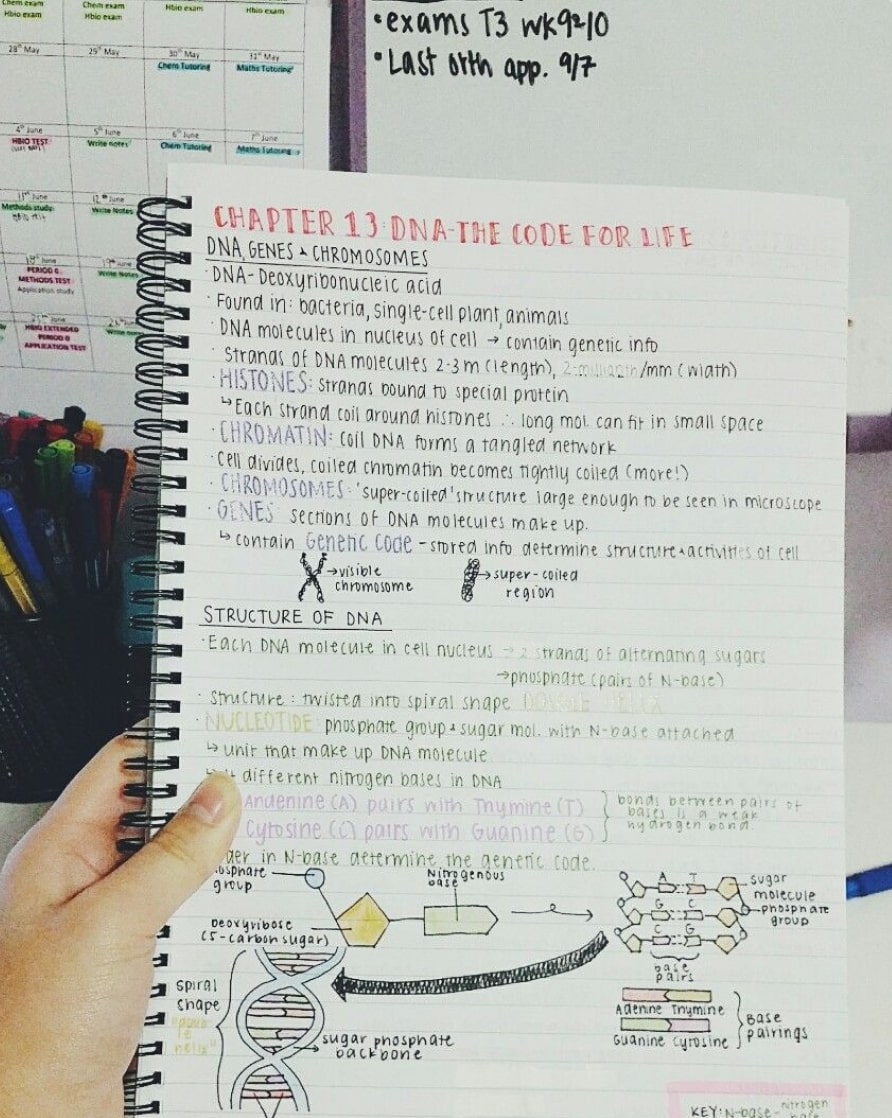 Chem exam
Hbio exam
Chem exam
Hbio exam
Hbio exam
Hbio exam
28th May
29th May
30th May
31st May
Chem Tutoring
Maths Tutoring
4th June
5th June
6th June
7th June
HBIO TEST
Write notes
Chem Tutoring
Maths Tutoring
11th June
12th June
Methods study
Write Notes
PERIOD 6
METHODS TEST
Application study
Write Notes
HBIO EXTENDED
PERIOD 0
APPLICATION TEST
• exams T3 wk9-10
• Last orth app. 9/7
CHAPTER 13: DNA-THE CODE FOR LIFE
DNA, GENES & CHROMOSOMES
· DNA- Deoxyribonucleic acid
· Found in: bacteria, single-cell plant, animals
· DNA molecules in nucleus of cell → contain genetic info
· Strands of DNA molecules 2-3 m (length), /mm (width)
· HISTONES: strands bound to special protein
↳ Each strand coil around histones ∴ long mol. can fit in small space
· CHROMATIN: coil DNA forms a tangled network
· Cell divides, coiled chromatin becomes tightly coiled (more!)
· CHROMOSOMES: 'super-coiled' structure large enough to be seen in microscope
· GENES sections of DNA molecules make up.
↳ contain Genetic Code - stored info determine structure & activities of cell
→ visible
chromosome
→ super-coiled
region
STRUCTURE OF DNA
· Each DNA molecule in cell nucleus → 2 strands of alternating sugars
→ phosphate (pairs of N-base)
· Structure: twisted into spiral shape DOUBLE HELIX
· NUCLEOTIDE: phosphate group & sugar mol. with N-base attached
↳ unit that make up DNA molecule
different nitrogen bases in DNA
Andenine (A) pairs with Thymine (T)
Cytosine (C) pairs with Guanine (G)
bonds between pairs of
bases is a weak
hydrogen bond.
in N-base determine the genetic code.
group
Nitrogenous
base
Deoxyribose
(5-carbon sugar)
A T
G C
C G
sugar
molecule
phosphate
group
base
pairs
Adenine Thymine
Guanine Cytosine
Base
pairings
spiral
shape
"double
helix"
sugar phosphate
backbone
KEY: N-base- nitrogen
base